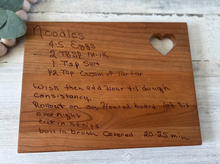 Noodles
4-5 Eggs
2 TBSP Milk
1 Tsp Salt
1/2 Tsp Cream of Tartar
then add flour til dough
consistancy
Rollout on floured board let sit
over night
cut in strips
boil in broth Covered 20-25 min.